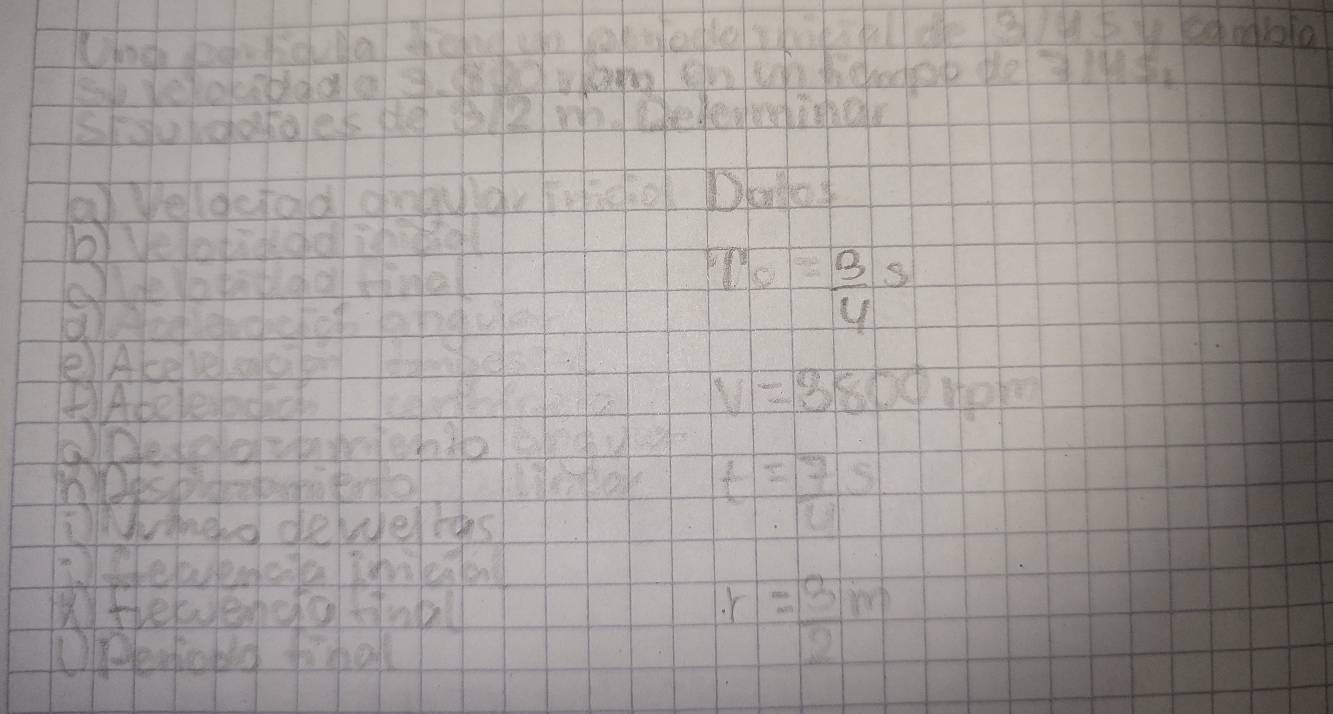 Una particula tiene un periodo inicial de 3/4 s y cambia
su velocidad a 3.800 rpm en un tiempo de 7/4 s.
si su radio es de 3/2 m. Determinar
a) Velociad angular inicial
b) Velocidad inicial
c) Velocidad final
d) Aceleración angular
e) Aceleración
f) Aceleración
g) Desplazamiento angular
h) Desplazamiento linear
i) Numero de vueltas
j) frecuencia inicial
k) frecuencia final
l) Periodo final
Datos
T0 = 3/4 s
V = 3800 rpm
t = 7/4 s
r = 3/2 m